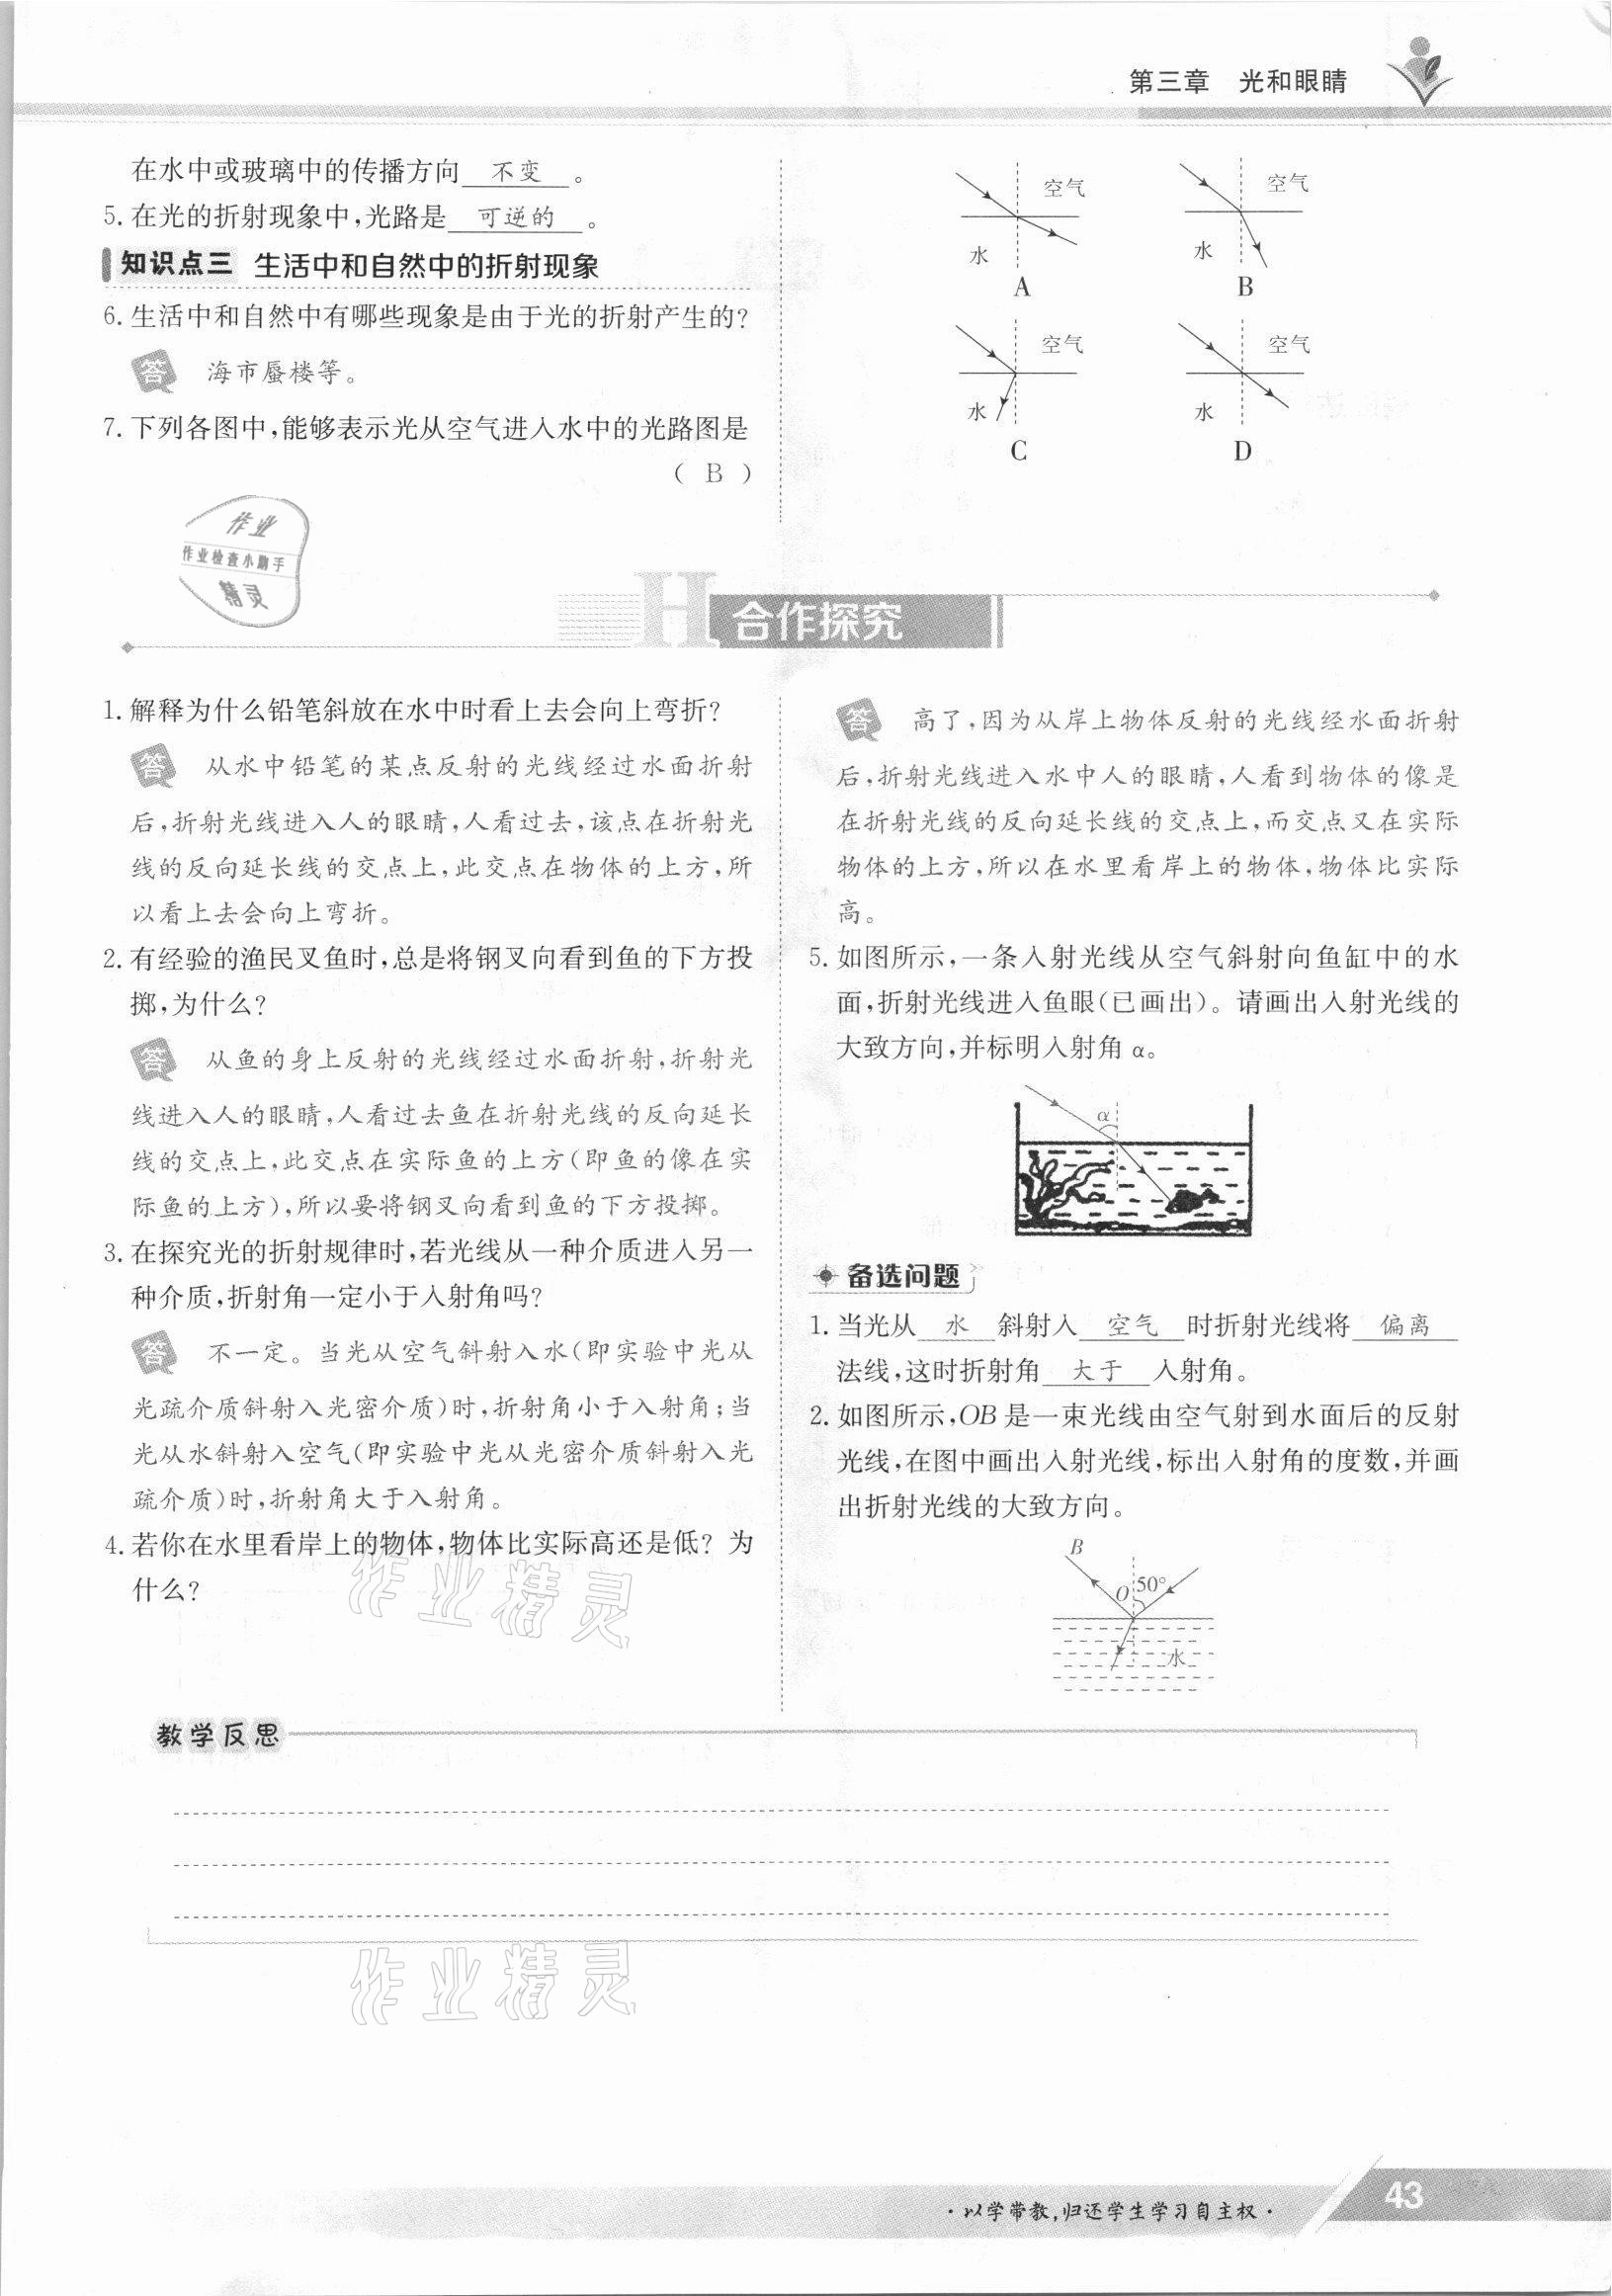 第三章　光和眼睛
在水中或玻璃中的传播方向 不变 。
5. 在光的折射现象中,光路是 可逆的 。
知识点三 生活中和自然中的折射现象
6. 生活中和自然中有哪些现象是由于光的折射产生的?
答 海市蜃楼等。
7. 下列各图中,能够表示光从空气进入水中的光路图是
( B )
空气
水
A
空气
水
B
空气
水
C
空气
水
D
作业
作业检查小助手
精灵
H 合作探究
1. 解释为什么铅笔斜放在水中时看上去会向上弯折?
答 从水中铅笔的某点反射的光线经过水面折射
后,折射光线进入人的眼睛,人看过去,该点在折射光
线的反向延长线的交点上,此交点在物体的上方,所
以看上去会向上弯折。
2. 有经验的渔民叉鱼时,总是将钢叉向看到鱼的下方投
掷,为什么?
答 从鱼的身上反射的光线经过水面折射,折射光
线进入人的眼睛,人看过去鱼在折射光线的反向延长
线的交点上,此交点在实际鱼的上方(即鱼的像在实
际鱼的上方),所以要将钢叉向看到鱼的下方投掷。
3. 在探究光的折射规律时,若光线从一种介质进入另一
种介质,折射角一定小于入射角吗?
答 不一定。当光从空气斜射入水(即实验中光从
光疏介质斜射入光密介质)时,折射角小于入射角;当
光从水斜射入空气(即实验中光从光密介质斜射入光
疏介质)时,折射角大于入射角。
4. 若你在水里看岸上的物体,物体比实际高还是低?为
什么?
答 高了,因为从岸上物体反射的光线经水面折射
后,折射光线进入水中人的眼睛,人看到物体的像是
在折射光线的反向延长线的交点上,而交点又在实际
物体的上方,所以在水里看岸上的物体,物体比实际
高。
5. 如图所示,一条入射光线从空气斜射向鱼缸中的水
面,折射光线进入鱼眼(已画出)。请画出入射光线的
大致方向,并标明入射角 α。
α
备选问题
1. 当光从 水 斜射入 空气 时折射光线将 偏离
法线,这时折射角 大于 入射角。
2. 如图所示,OB 是一束光线由空气射到水面后的反射
光线,在图中画出入射光线,标出入射角的度数,并画
出折射光线的大致方向。
B
O 50°
水
作业精灵
教学反思
作业精灵
·以学带教,归还学生学习自主权·
43